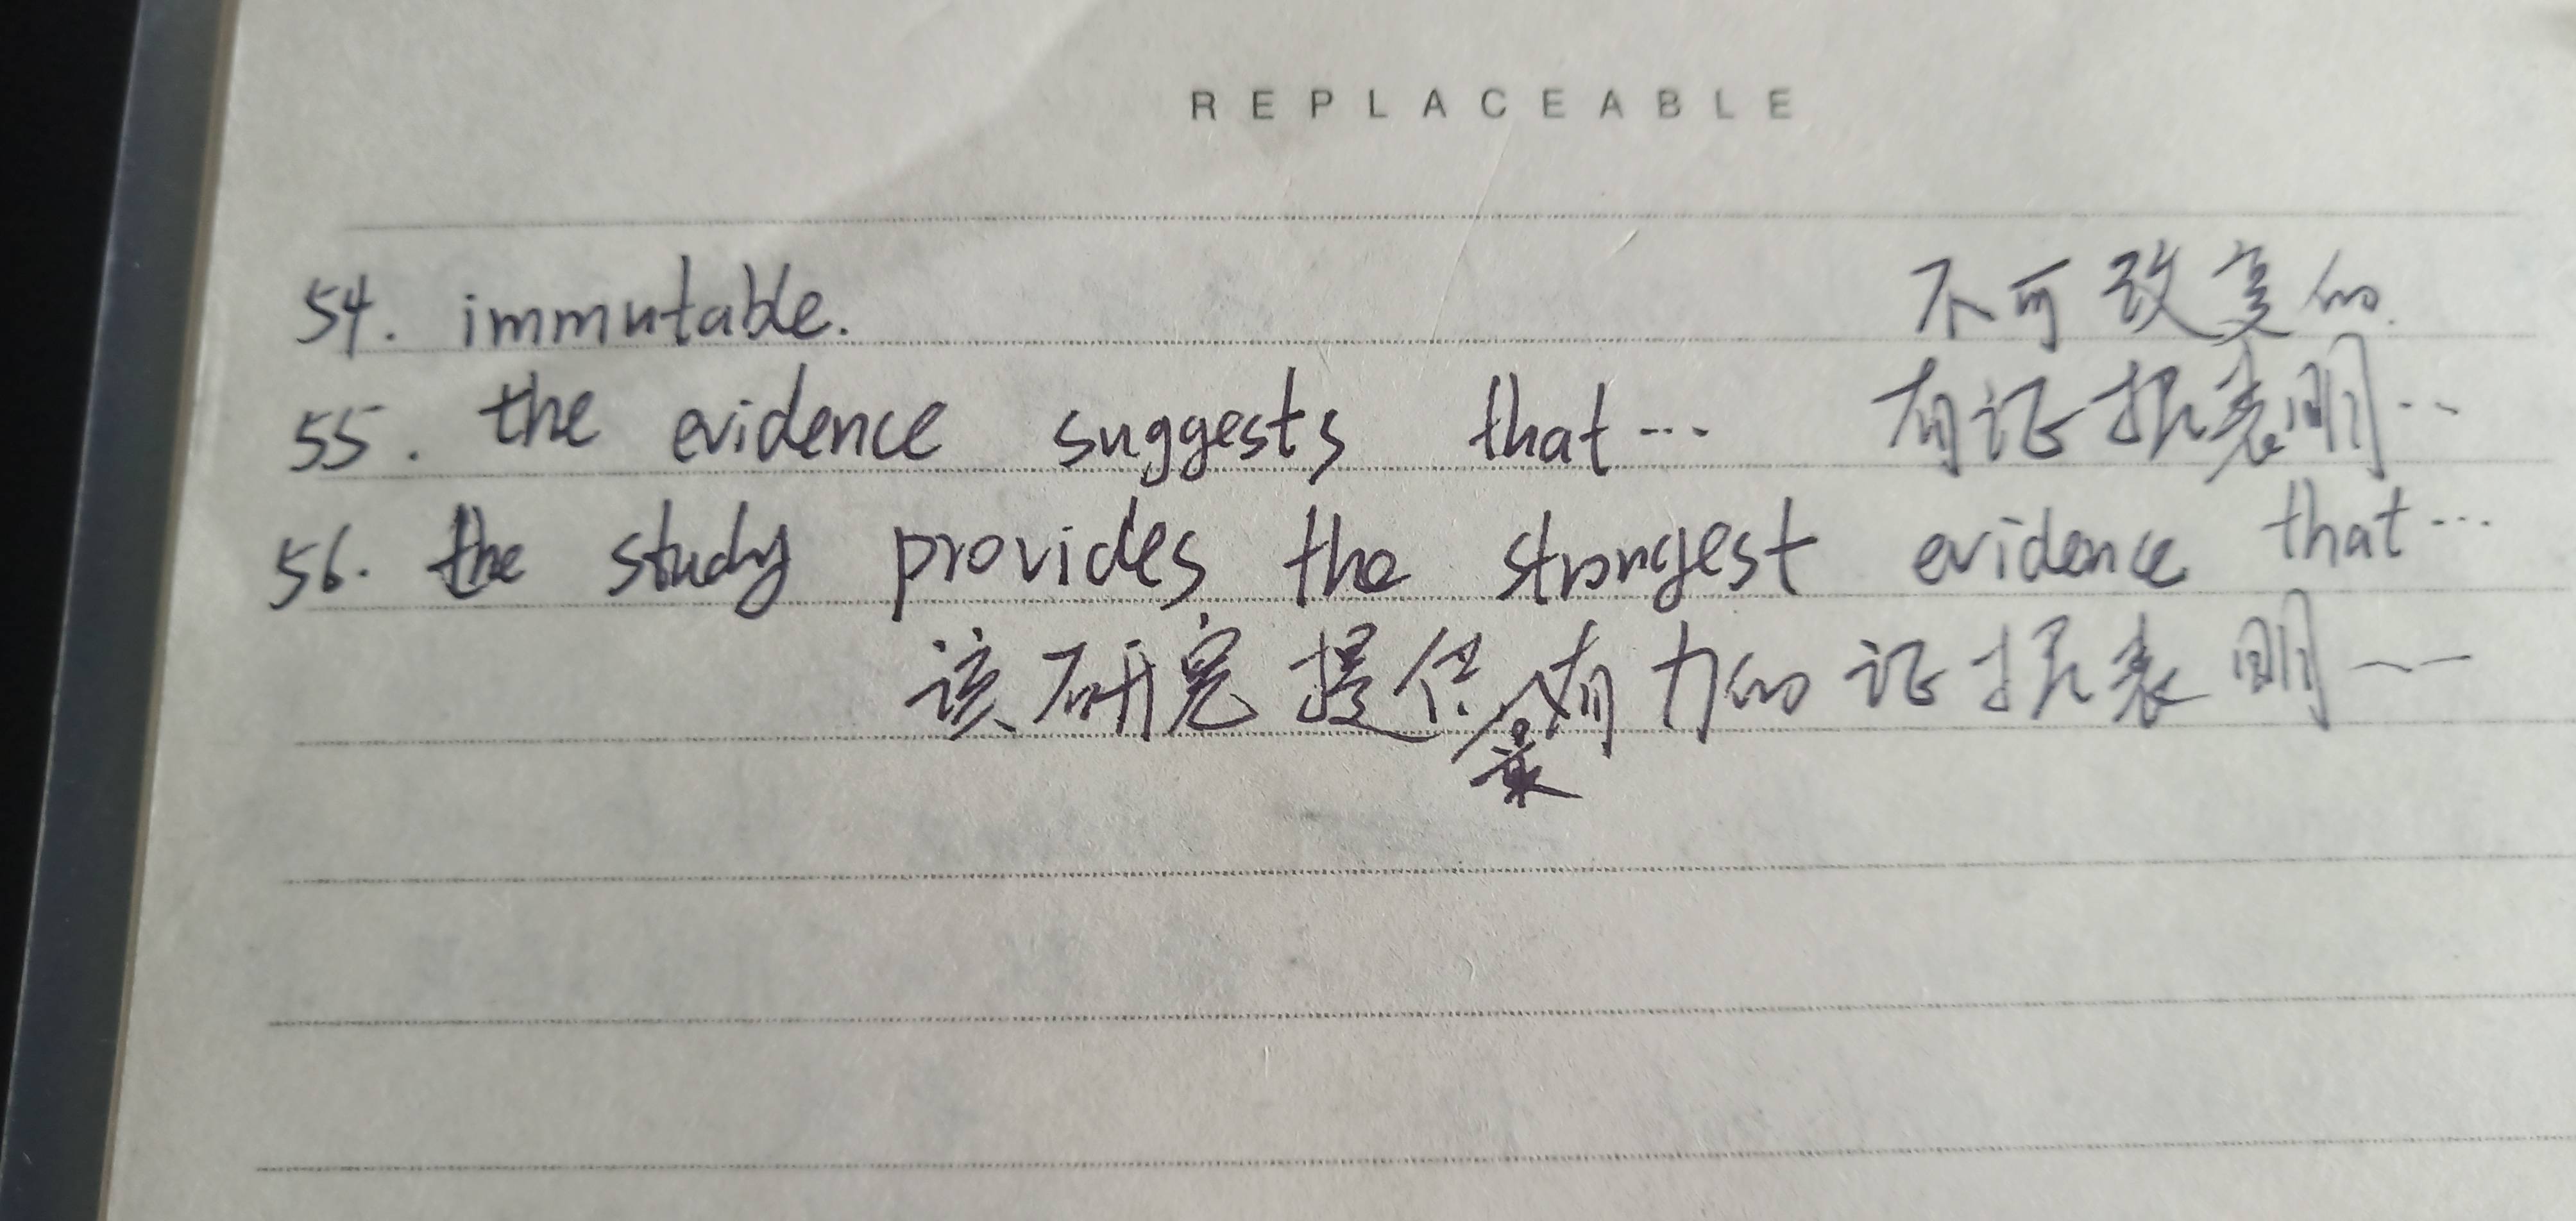 REPLACEABLE
54. immutable. 不可改变的.
55. the evidence suggests that... 有证据表明...
56. the study provides the strongest evidence that...
该研究提供最有力的证据表明——